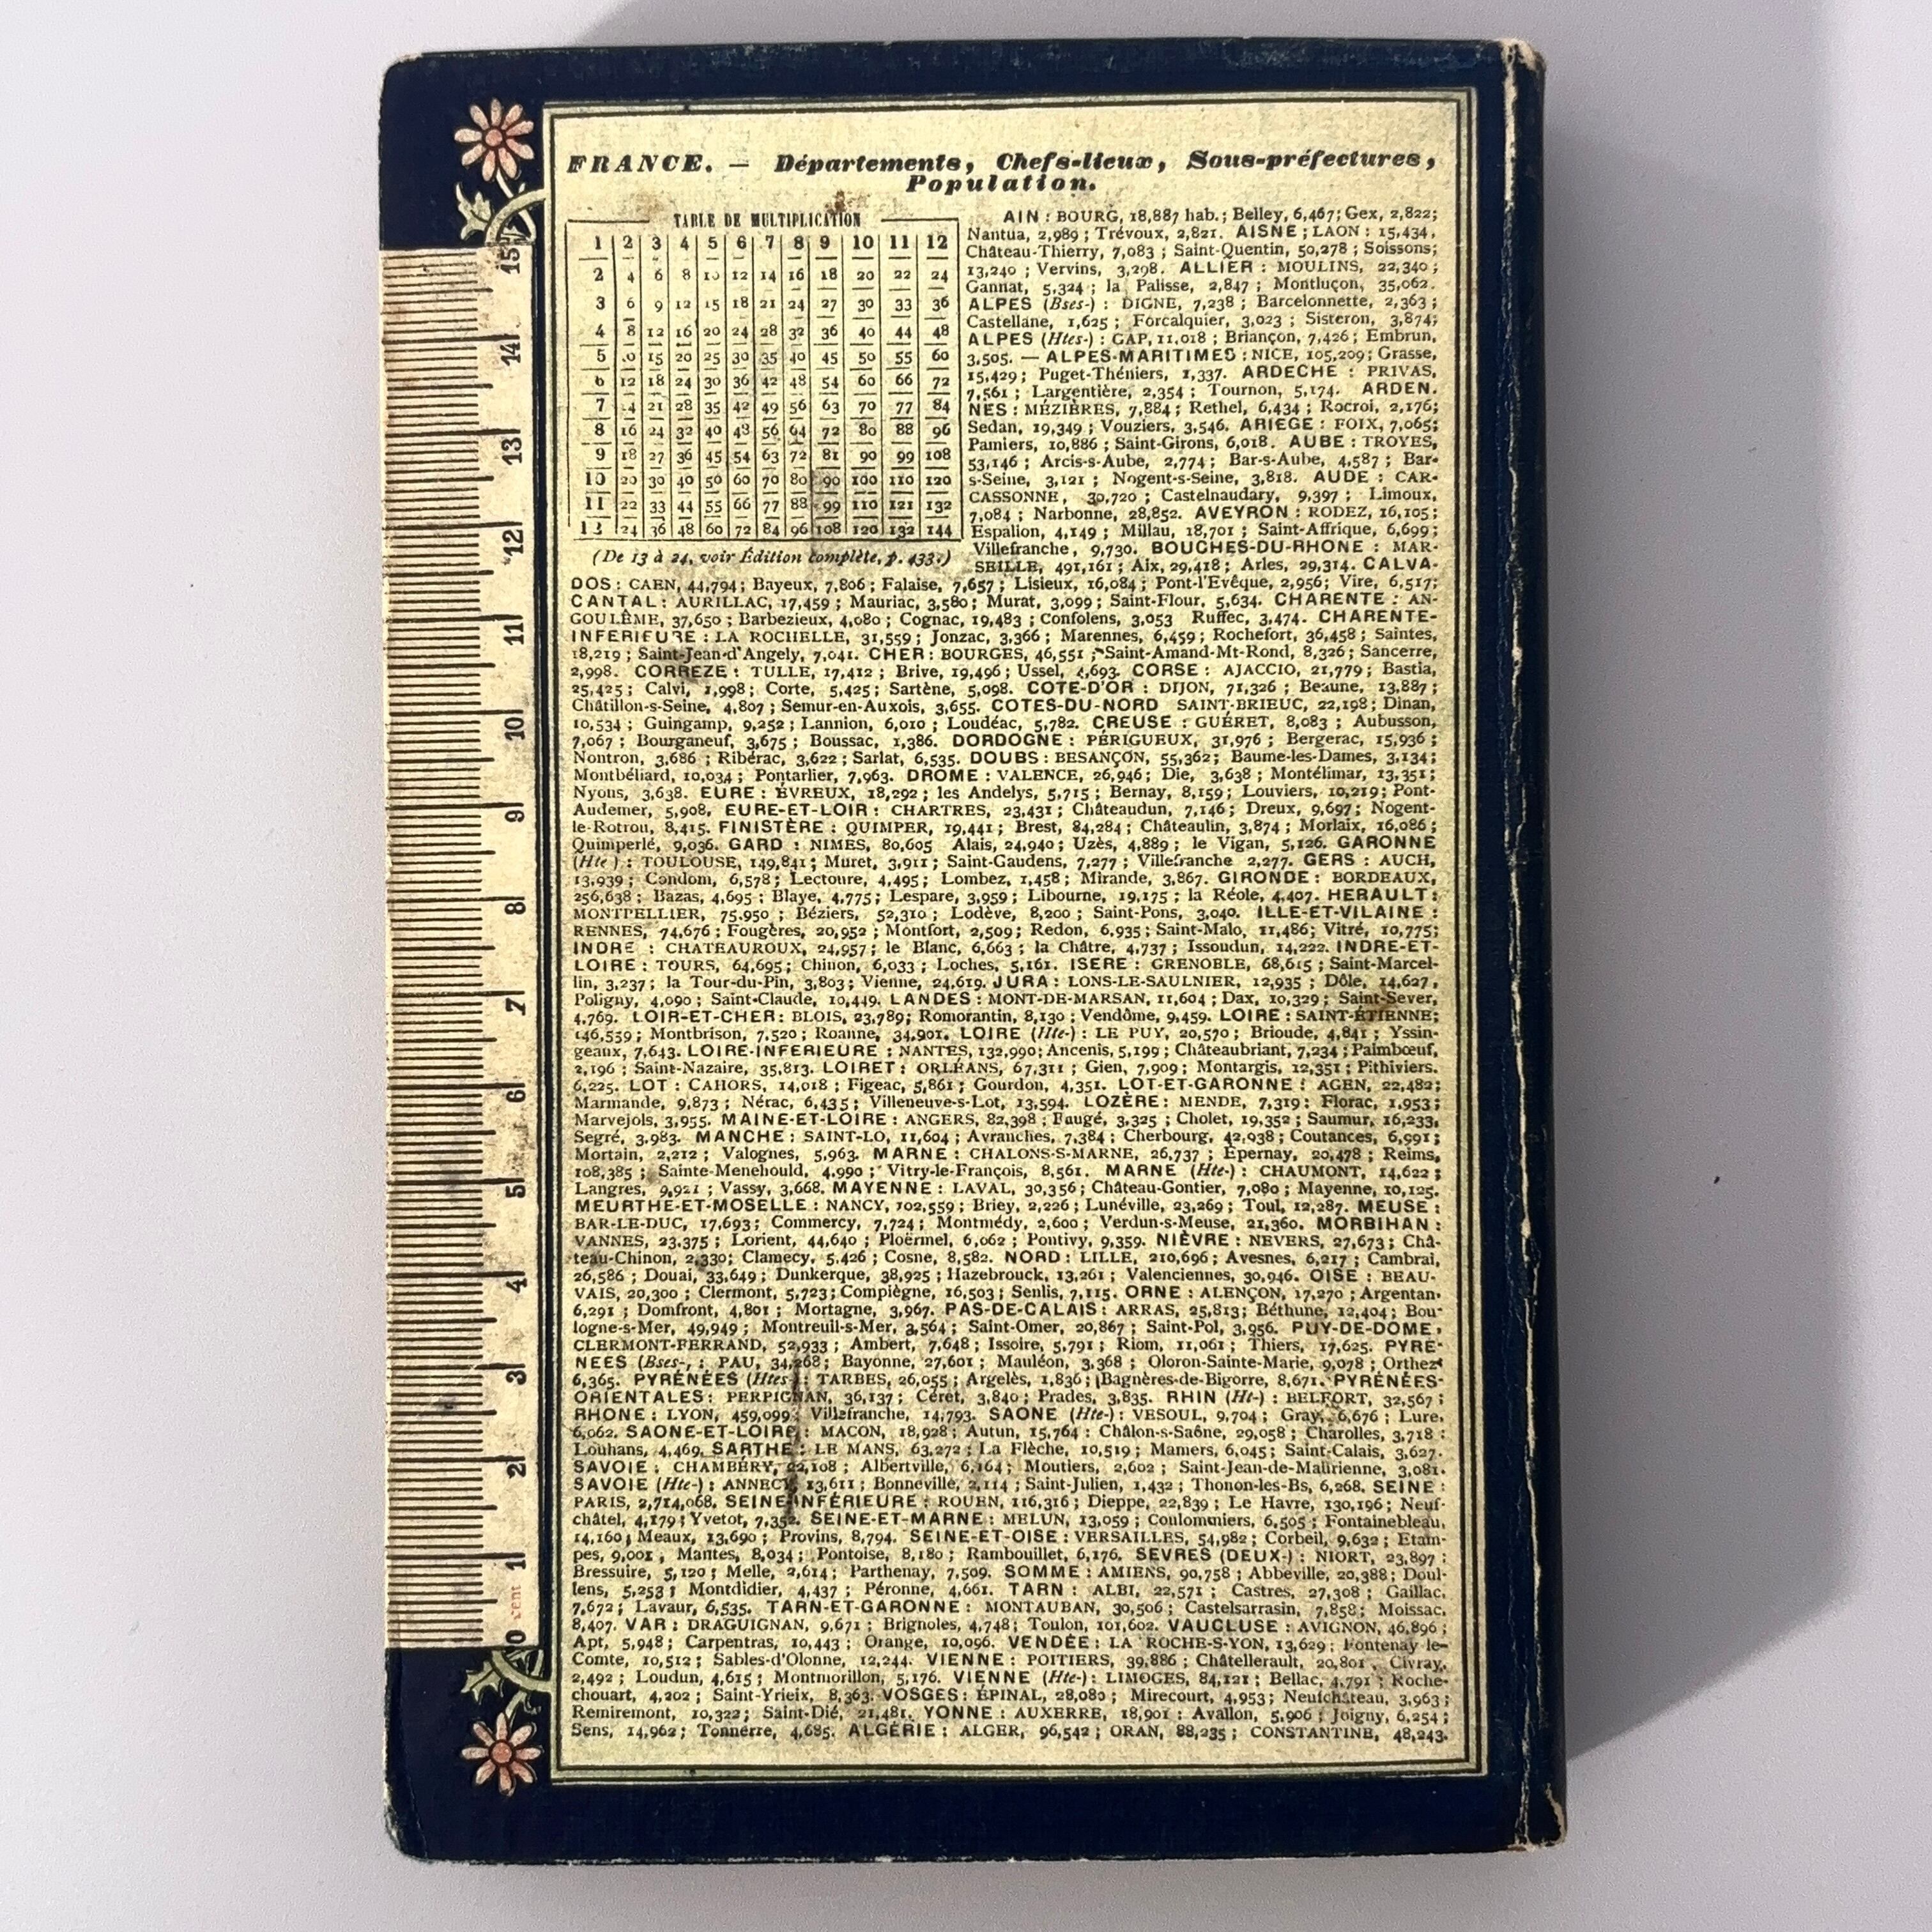 FRANCE. — Départements, Chefs-lieux, Sous-préfectures,
Population.
TABLE DE MULTIPLICATION
1 2 3 4 5 6 7 8 9 10 11 12
2 4 6 8 12 14 16 18 20 22 24
3 6 9 12 15 18 21 24 27 30 33 36
4 8 12 16 20 24 28 32 36 40 44 48
5 15 20 25 30 35 40 45 50 55 60
6 12 18 24 30 36 42 48 54 60 66 72
7 21 28 35 42 49 56 63 70 77 84
8 16 24 32 40 48 56 64 72 80 88 96
9 18 27 36 45 54 63 72 81 90 99 108
10 20 30 40 50 60 70 80 90 100 110 120
11 22 33 44 55 66 77 88 99 110 121 132
24 36 48 60 72 84 96 108 120 132 144
(De 13 à 24, voir Édition complète, p. 433.)
AIN : BOURG, 18,887 hab.; Belley, 6,467; Gex, 2,822;
Nantua, 2,989 ; Trévoux, 2,821. AISNE ; LAON : 15,434,
Château-Thierry, 7,083 ; Saint-Quentin, 50,278 ; Soissons;
13,240 ; Vervins, 3,298. ALLIER : MOULINS, 22,340 ;
Gannat, 5,324 ; la Palisse, 2,847 ; Montluçon, 35,062.
ALPES (Bses-) : DIGNE, 7,238 ; Barcelonnette, 2,363 ;
Castellane, 1,625 ; Forcalquier, 3,023 ; Sisteron, 3,874;
ALPES (Htes-) : GAP, 11,018 ; Briançon, 7,426 ; Embrun,
3,505. — ALPES-MARITIMES : NICE, 105,209 ; Grasse,
15,429 ; Puget-Théniers, 1,337. ARDECHE : PRIVAS,
7,561 ; Largentière, 2,354 ; Tournon, 5,174. ARDEN.
NES : MÉZIÈRES, 7,884 ; Rethel, 6,434 ; Rocroi, 2,176;
Sedan, 19,349 ; Vouziers, 3,546. ARIEGE : FOIX, 7,065;
Pamiers, 10,886 ; Saint-Girons, 6,018. AUBE : TROYES,
53,146 ; Arcis-s-Aube, 2,774 ; Bar-s-Aube, 4,587 ; Bar-
s-Seine, 3,121 ; Nogent-s-Seine, 3,818. AUDE : CAR-
CASSONNE, 30,720 ; Castelnaudary, 9,397 ; Limoux,
7,084 ; Narbonne, 28,852. AVEYRON : RODEZ, 16,105;
Espalion, 4,149 ; Millau, 18,701 ; Saint-Affrique, 6,699 ;
Villefranche, 9,730. BOUCHES-DU-RHONE : MAR-
SEILLE, 491,161 ; Aix, 29,418 ; Arles, 29,314. CALVA-
DOS : CAEN, 44,794 ; Bayeux, 7,806 ; Falaise, 7,657 ; Lisieux, 16,084 ; Pont-l'Evêque, 2,956; Vire, 6,517;
CANTAL : AURILLAC, 17,459 ; Mauriac, 3,580 ; Murat, 3,099 ; Saint-Flour, 5,634. CHARENTE : AN-
GOULÊME, 37,650 ; Barbezieux, 4,080 ; Cognac, 19,483 ; Confolens, 3,053 Ruffec, 3,474. CHARENTE-
INFERIEURE : LA ROCHELLE, 31,559 ; Jonzac, 3,366 ; Marennes, 6,459 ; Rochefort, 36,458 ; Saintes,
18,219 ; Saint-Jean-d'Angely, 7,041. CHER : BOURGES, 46,551 ; Saint-Amand-Mt-Rond, 8,326 ; Sancerre,
2,998. CORREZE : TULLE, 17,412 ; Brive, 19,496 ; Ussel, 4,693. CORSE : AJACCIO, 21,779 ; Bastia,
25,425 ; Calvi, 1,998 ; Corte, 5,425 ; Sartène, 5,098. COTE-D'OR : DIJON, 71,326 ; Beaune, 13,887 ;
Châtillon-s-Seine, 4,807 ; Semur-en-Auxois, 3,655. COTES-DU-NORD SAINT-BRIEUC, 22,198 ; Dinan,
10,534 ; Guingamp, 9,252 ; Lannion, 6,010 ; Loudéac, 5,782. CREUSE : GUÉRET, 8,083 ; Aubusson,
7,067 ; Bourganeuf, 3,675 ; Boussac, 1,386. DORDOGNE : PÉRIGUEUX, 31,976 ; Bergerac, 15,936 ;
Nontron, 3,686 ; Ribérac, 3,622 ; Sarlat, 6,535. DOUBS : BESANÇON, 55,362 ; Baume-les-Dames, 3,134;
Montbéliard, 10,034 ; Pontarlier, 7,963. DROME : VALENCE, 26,946 ; Die, 3,638 ; Montélimar, 13,351;
Nyons, 3,638. EURE : ÉVREUX, 18,292 ; les Andelys, 5,715 ; Bernay, 8,159 ; Louviers, 10,219 ; Pont-
Audemer, 5,908, EURE-ET-LOIR : CHARTRES, 23,431 ; Châteaudun, 7,146 ; Dreux, 9,697 ; Nogent-
le-Rotrou, 8,415. FINISTÈRE : QUIMPER, 19,441 ; Brest, 84,284 ; Châteaulin, 3,874 ; Morlaix, 16,086 ;
Quimperlé, 9,036. GARD : NIMES, 80,605 Alais, 24,940 ; Uzès, 4,889 ; le Vigan, 5,126. GARONNE
(Hte ) : TOULOUSE, 149,841 ; Muret, 3,911 ; Saint-Gaudens, 7,277 ; Villefranche 2,277. GERS : AUCH,
13,939 ; Condom, 6,578 ; Lectoure, 4,495 ; Lombez, 1,458 ; Mirande, 3,867. GIRONDE : BORDEAUX,
256,638 ; Bazas, 4,695 ; Blaye, 4,775 ; Lespare, 3,959 ; Libourne, 19,175 ; la Réole, 4,407. HERAULT :
MONTPELLIER, 75.950 ; Béziers, 52,310 ; Lodève, 8,200 ; Saint-Pons, 3,040. ILLE-ET-VILAINE :
RENNES, 74,676 ; Fougères, 20,952 ; Montfort, 2,509 ; Redon, 6,935 ; Saint-Malo, 11,486; Vitré, 10,775;
INDRE : CHATEAUROUX, 24,957 ; le Blanc, 6,663 ; la Châtre, 4,737 ; Issoudun, 14,222. INDRE-ET-
LOIRE : TOURS, 64,695 ; Chinon, 6,033 ; Loches, 5,161. ISERE : GRENOBLE, 68,615 ; Saint-Marcel-
lin, 3,237 ; la Tour-du-Pin, 3,803 ; Vienne, 24,619. JURA : LONS-LE-SAULNIER, 12,935 ; Dôle, 14,627,
Poligny, 4,090 ; Saint-Claude, 10,449. LANDES : MONT-DE-MARSAN, 11,604 ; Dax, 10,329 ; Saint-Sever,
4,769. LOIR-ET-CHER : BLOIS, 23,789; Romorantin, 8,130 ; Vendôme, 9,459. LOIRE : SAINT-ÉTIENNE;
146,559 ; Montbrison, 7,520 ; Roanne, 34,901. LOIRE (Hte-) : LE PUY, 20,570 ; Brioude, 4,841 ; Yssin-
geaux, 7,643. LOIRE-INFERIEURE : NANTES, 132,990; Ancenis, 5,199 ; Châteaubriant, 7,234 ; Paimbœuf,
2,196 ; Saint-Nazaire, 35,813. LOIRET : ORLÉANS, 67,311 ; Gien, 7,909 ; Montargis, 12,351 ; Pithiviers.
6,225. LOT : CAHORS, 14,018 ; Figeac, 5,861 ; Gourdon, 4,351. LOT-ET-GARONNE : AGEN, 22,482;
Marmande, 9,873 ; Nérac, 6,435 ; Villeneuve-s-Lot, 13,594. LOZÈRE : MENDE, 7,319 : Florac, 1,953 ;
Marvejols, 3,955. MAINE-ET-LOIRE : ANGERS, 82,398 ; Baugé, 3,325 ; Cholet, 19,352 ; Saumur, 16,233,
Segré, 3,983. MANCHE : SAINT-LO, 11,604 ; Avranches, 7,384 ; Cherbourg, 42,938 ; Coutances, 6,991;
Mortain, 2,212 ; Valognes, 5,963. MARNE : CHALONS-S-MARNE, 26,737 ; Epernay, 20,478 ; Reims,
108,385 ; Sainte-Menehould, 4,990 ; Vitry-le-François, 8,561. MARNE (Hte-) : CHAUMONT, 14,622 ;
Langres, 9,921 ; Vassy, 3,668. MAYENNE : LAVAL, 30,356 ; Château-Gontier, 7,080 ; Mayenne, 10,125.
MEURTHE-ET-MOSELLE : NANCY, 102,559 ; Briey, 2,226 ; Lunéville, 23,269 ; Toul, 12,287. MEUSE :
BAR-LE-DUC, 17,693 ; Commercy, 7,724 ; Montmédy, 2,600 ; Verdun-s-Meuse, 21,360. MORBIHAN :
VANNES, 23,375 ; Lorient, 44,640 ; Ploërmel, 6,062 ; Pontivy, 9,359. NIÈVRE : NEVERS, 27,673 ; Châ-
teau-Chinon, 2,330; Clamecy, 5,426 ; Cosne, 8,582. NORD : LILLE, 210,696 ; Avesnes, 6,217 ; Cambrai,
26,586 ; Douai, 33,649 ; Dunkerque, 38,925 ; Hazebrouck, 13,261 ; Valenciennes, 30,946. OISE : BEAU-
VAIS, 20,300 ; Clermont, 5,723 ; Compiègne, 16,503 ; Senlis, 7,115. ORNE : ALENÇON, 17,270 ; Argentan,
6,291 ; Domfront, 4,801 ; Mortagne, 3,967. PAS-DE-CALAIS : ARRAS, 25,813; Béthune, 12,404 ; Bou-
logne-s-Mer, 49,949 ; Montreuil-s-Mer, 3,564 ; Saint-Omer, 20,867 ; Saint-Pol, 3,956. PUY-DE-DOME,
CLERMONT-FERRAND, 52,933 ; Ambert, 7,648 ; Issoire, 5,791 ; Riom, 11,061 ; Thiers, 17,625. PYRE-
NEES (Bses-, : PAU, 34,268; Bayonne, 27,601 ; Mauléon, 3,368 ; Oloron-Sainte-Marie, 9,078 ; Orthez
6,365. PYRÉNÉES (Htes-) : TARBES, 26,055 ; Argelès, 1,836 ; Bagnères-de-Bigorre, 8,671. PYRÉNÉES-
ORIENTALES : PERPIGNAN, 36,137 ; Céret, 3,840 ; Prades, 3,835. RHIN (Ht-) : BELFORT, 32,567 ;
RHONE : LYON, 459,099 ; Villefranche, 14,793. SAONE (Hte-) : VESOUL, 9,704 ; Gray, 6,676 ; Lure,
6,062. SAONE-ET-LOIRE : MACON, 18,928 ; Autun, 15,764 : Châlon-s-Saône, 29,058 ; Charolles, 3,718 :
Louhans, 4,469. SARTHE : LE MANS, 63,272 ; La Flèche, 10,519 ; Mamers, 6,045 ; Saint-Calais, 3,627.
SAVOIE : CHAMBÉRY, 22,108 ; Albertville, 6,164 ; Moutiers, 2,602 ; Saint-Jean-de-Maurienne, 3,081.
SAVOIE (Hte-) : ANNECY, 13,611 ; Bonneville, 2,114 ; Saint-Julien, 1,432 ; Thonon-les-Bs, 6,268. SEINE :
PARIS, 2,714,068. SEINE-INFÉRIEURE : ROUEN, 116,316 ; Dieppe, 22,839 ; Le Havre, 130,196 ; Neuf-
châtel, 4,179 ; Yvetot, 7,352. SEINE-ET-MARNE : MELUN, 13,059 ; Coulommiers, 6,505 ; Fontainebleau,
14,160 ; Meaux, 13,690 ; Provins, 8,794. SEINE-ET-OISE : VERSAILLES, 54,982 ; Corbeil, 9,632 ; Etam-
pes, 9,001 ; Mantes, 8,034 ; Pontoise, 8,180 ; Rambouillet, 6,176. SEVRES (DEUX-) : NIORT, 23,897 ;
Bressuire, 5,120 ; Melle, 2,614 ; Parthenay, 7,509. SOMME : AMIENS, 90,758 ; Abbeville, 20,388 ; Doul-
lens, 5,253 ; Montdidier, 4,437 ; Péronne, 4,661. TARN : ALBI, 22,571 ; Castres, 27,308 ; Gaillac,
7,672 ; Lavaur, 6,535. TARN-ET-GARONNE : MONTAUBAN, 30,506 ; Castelsarrasin, 7,858 ; Moissac,
8,407. VAR : DRAGUIGNAN, 9,671 ; Brignoles, 4,748 ; Toulon, 101,602. VAUCLUSE : AVIGNON, 46,896 ;
Apt, 5,948 ; Carpentras, 10,443 ; Orange, 10,096. VENDÉE : LA ROCHE-S-YON, 13,629 ; Fontenay-le-
Comte, 10,512 ; Sables-d'Olonne, 12,244. VIENNE : POITIERS, 39,886 ; Châtellerault, 20,801 . Civray,
2,492 ; Loudun, 4,615 ; Montmorillon, 5,176. VIENNE (Hte-) : LIMOGES, 84,121 ; Bellac, 4,791 ; Roche-
chouart, 4,202 ; Saint-Yrieix, 8,363. VOSGES : ÉPINAL, 28,080 ; Mirecourt, 4,953 ; Neufchâteau, 3,963 ;
Remiremont, 10,322 ; Saint-Dié, 21,481. YONNE : AUXERRE, 18,901 : Avallon, 5,906 ; Joigny, 6,254 ;
Sens, 14,962 ; Tonnerre, 4,685. ALGÉRIE : ALGER, 96,542 ; ORAN, 88,235 ; CONSTANTINE, 48,243.
15
14
13
12
11
10
9
8
7
6
5
4
3
2
1
cent
0